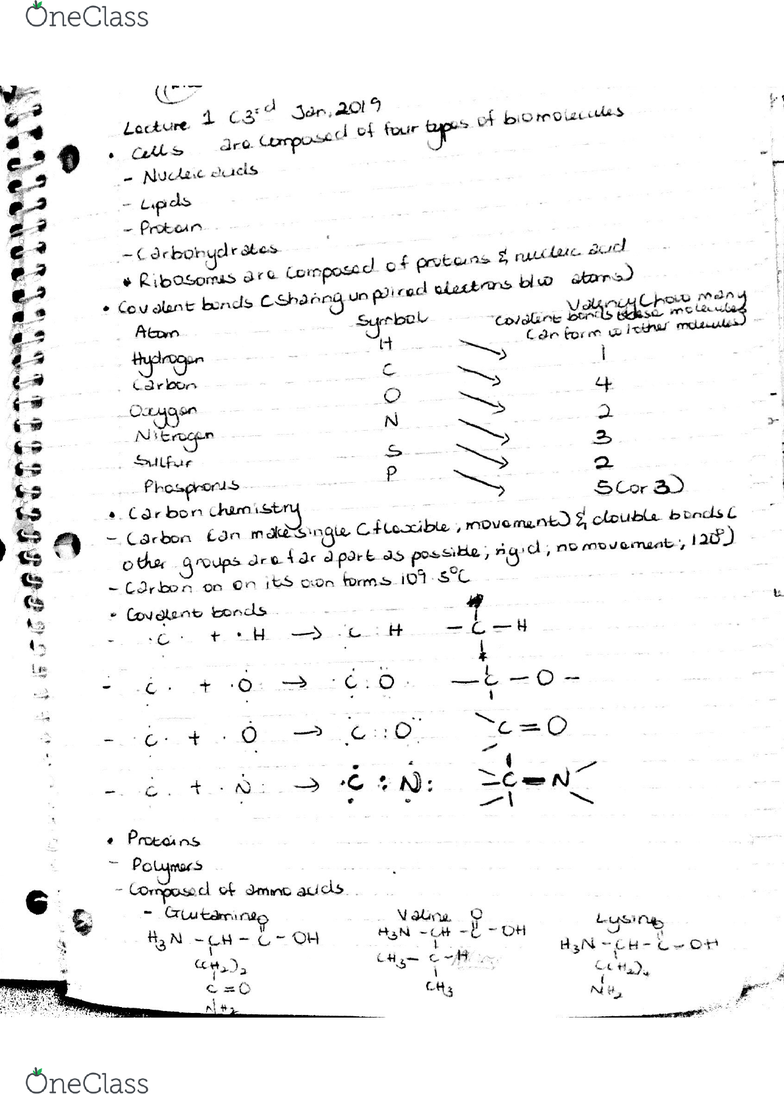 OneClass
Lecture 1 (3rd Jan, 2019
• Cells are composed of four types of biomolecules
- Nucleic acids
- Lipids
- Protein
- Carbohydrates
* Ribosomes are composed of proteins & nucleic acid
• Covalent bonds (sharing unpaired electrons b/w atoms)
Atom Symbol Valency (how many covalent bonds these molecules can form w/ other molecules)
Hydrogen H → 1
Carbon C → 4
Oxygen O → 2
Nitrogen N → 3
Sulfur S → 2
Phosphorus P → 5 (or 3)
• Carbon chemistry
- Carbon can make single (flexible, movement) & double bonds (
other groups are far apart as possible; rigid; no movement; 120°)
- Carbon on on its own forms 109.5°C
• Covalent bonds
- ·C· + ·H → C:H -C-H
- ·C· + ·O: → ·C:O· -C-O-
- ·C· + ·O: → C::O C=O
- ·C· + ·N: → ·C:N: -C-N
• Proteins
- Polymers
- Composed of amino acids
- Glutamine Valine Lysine
H₃N-CH-C-OH H₃N-CH-C-OH H₃N-CH-C-OH
O O O
(CH₂)₂ CH₃-C-H (CH₂)₄
C=O CH₃ NH₂
NH₂
OneClass